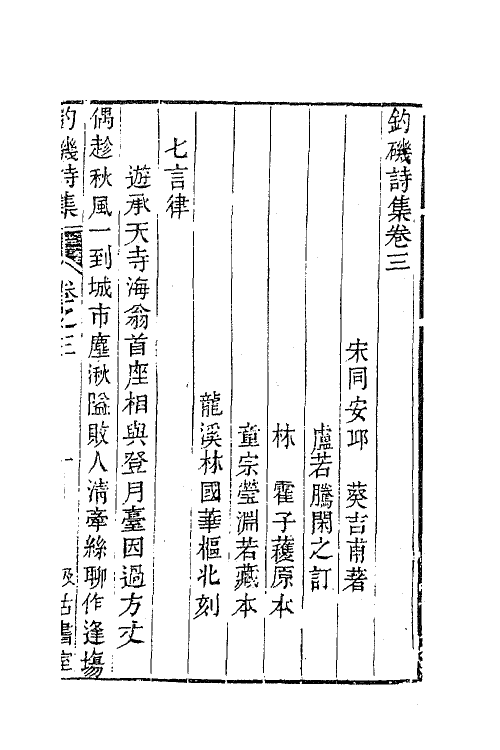 釣磯詩集卷三
宋同安邱　葵吉甫著
盧若騰閑之訂
林　霍子蒦原本
童宗瑩淵若藏本
龍溪林國華樞北刻
七言律
遊承天寺海翁首座相與登月臺因過方丈
偶趁秋風一到城市塵湫隘敗人清牽絲聊作逢塲
釣磯詩集　卷之三　一　汲古書室